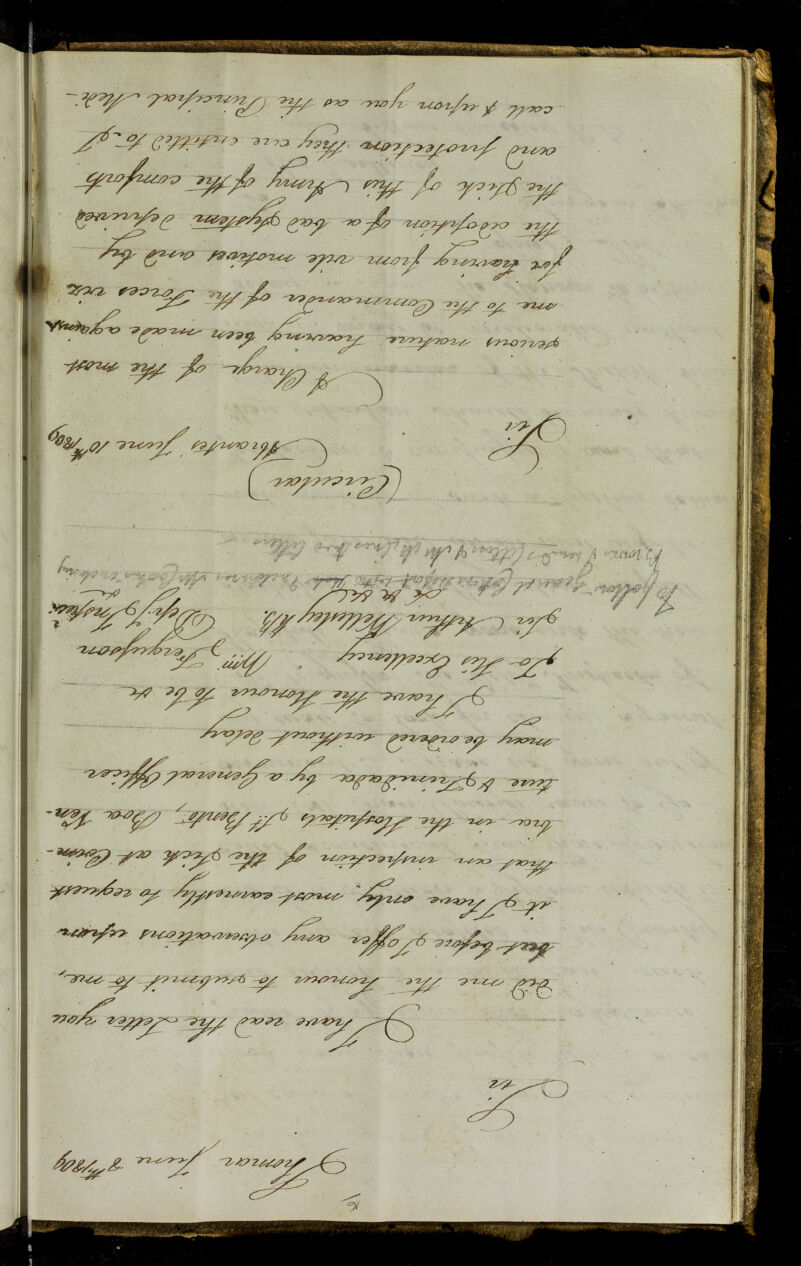 Thomar June 8th 1809
Sir
I have read the Letter you
did me the honour to submit to me,
but before I offer any observations upon
it I have only most earnestly to request
that an inspection of the Sick at Coim-
bra in the Hospitals St. Bento, Boa Ven-
ture & Trinidada by a General Officer
may be ordered without delay
I have the Honour to be &c
To His Excellency Wm. Fergusson
Sir Arthur Wellesley K.B. Depy. Inspecr.
&c &c &c
To follow General Cotton's
(Circular)
Abrantes June 10th 1809
Sir
A Charge of the most
serious nature having been made against
me to the Commander of the Forces viz
for having from vile motives and by
the adoption of a bad system deprived
the Sick of this Army of the comforts
and protection they are entitled to. I
call & upon you as the Principal Medi-